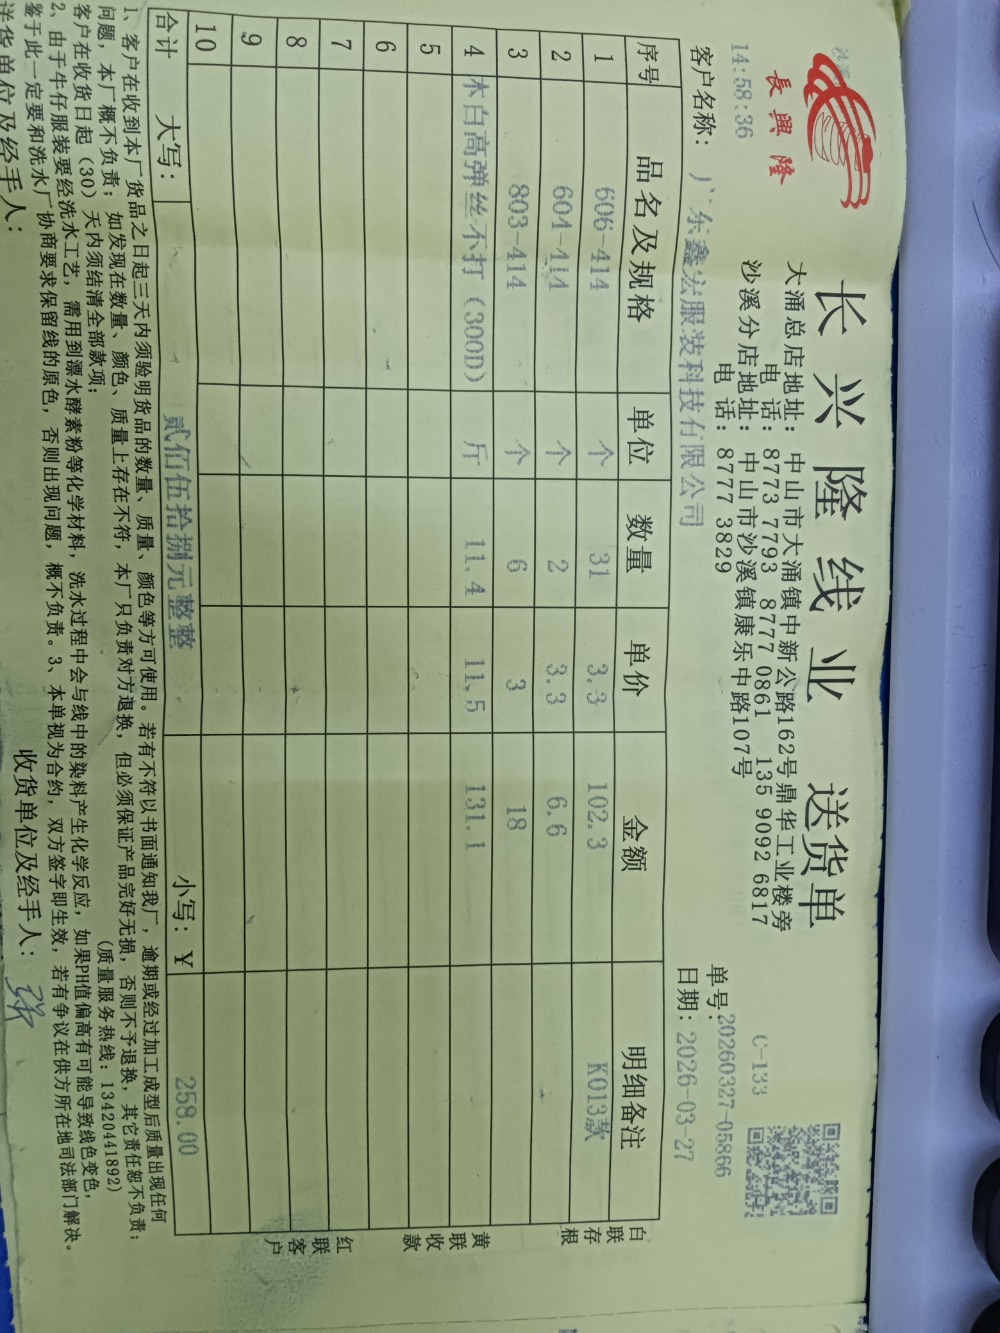 長興隆
长兴隆线业 送货单
大涌总店地址：中山市大涌镇中新公路162号鼎华工业楼旁
电 话：8773 7793 8777 0861 135 9092 6817
沙溪分店地址：中山市沙溪镇康乐中路107号
电 话：8777 3829
C-133
单号：20260327-05866
14:58:36
日期：2026-03-27
客户名称：广东鑫宏服装科技有限公司
序号 品名及规格 单位 数量 单价 金额 明细备注
1 606-414 个 31 3.3 102.3 K013款
2 604-414 个 2 3.3 6.6
3 803-414 个 6 3 18
4 本白高弹丝不打（300D） 斤 11.4 11.5 131.1
5
6
7
8
9
10
合计 大写： 贰佰伍拾捌元整整 小写：￥ 258.00
白联存根
黄联收款
红联客户
1、客户在收到本厂货品之日起三天内须验明货品的数量、质量、颜色等方可使用。若有不符以书面通知我厂，逾期或经过加工成型后质量出现任何
问题，本厂概不负责；如发现在数量、颜色、质量上存在不符，本厂只负责对方退换，但必须保证产品完好无损，否则不予退换，其它责任恕不负责；
客户在收货日起（30）天内须结清全部款项； （质量服务热线：13420441892）
2、由于牛仔服装要经洗水工艺，需用到漂水酵素粉等化学材料，洗水过程中会与线中的染料产生化学反应，如果PH值偏高有可能导致线色变色，
鉴于此一定要和洗水厂协商要求保留线的原色，否则出现问题，概不负责。3、本单视为合约，双方签字即生效，若有争议在供方所在地司法部门解决。
送货单位及经手人： 收货单位及经手人：